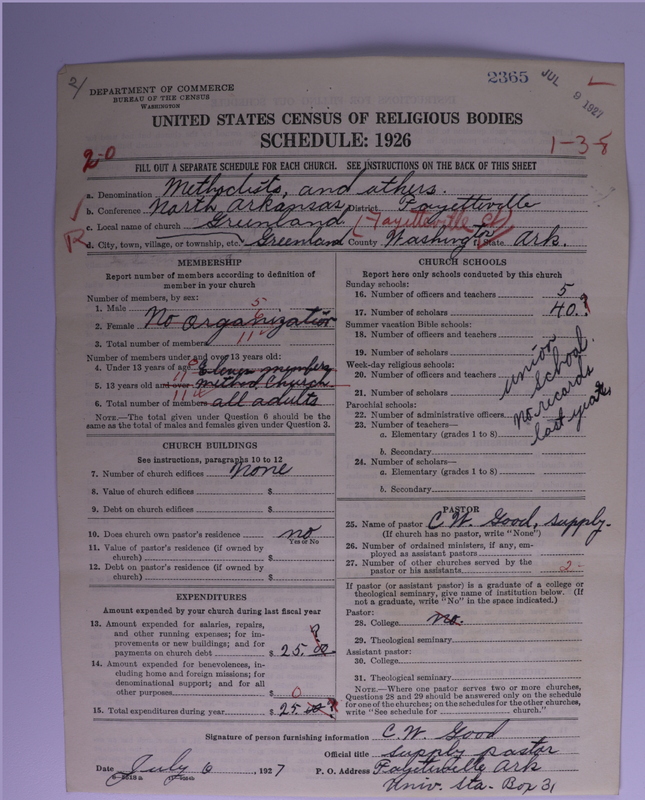 2/
DEPARTMENT OF COMMERCE
BUREAU OF THE CENSUS
WASHINGTON
2365
JUL 9 1927
UNITED STATES CENSUS OF RELIGIOUS BODIES
SCHEDULE: 1926
1-3-8
2-0
FILL OUT A SEPARATE SCHEDULE FOR EACH CHURCH. SEE INSTRUCTIONS ON THE BACK OF THIS SHEET
a. Denomination Methodists, and others.
b. Conference North Arkansas District Fayetteville
c. Local name of church Greenland (Fayetteville Ct)
R
d. City, town, village, or township, etc. Greenland County Washington State Ark.
MEMBERSHIP
Report number of members according to definition of
member in your church
Number of members, by sex:
1. Male 5
2. Female 6 No organization
3. Total number of members 11
Number of members under and over 13 years old:
4. Under 13 years of age 0 Eleven members
5. 13 years old and over 11 Method Church
6. Total number of members 11 all adults
NOTE.—The total given under Question 6 should be the
same as the total of males and females given under Question 3.
CHURCH BUILDINGS
See instructions, paragraphs 10 to 12
7. Number of church edifices none
8. Value of church edifices $
9. Debt on church edifices $
10. Does church own pastor's residence no
Yes or No
11. Value of pastor's residence (if owned by
church) $
12. Debt on pastor's residence (if owned by
church) $
EXPENDITURES
Amount expended by your church during last fiscal year
13. Amount expended for salaries, repairs,
and other running expenses; for im-
provements or new buildings; and for
payments on church debt $ 25.00
14. Amount expended for benevolences, in-
cluding home and foreign missions; for
denominational support; and for all
other purposes $ 0
15. Total expenditures during year $ 25.00
CHURCH SCHOOLS
Report here only schools conducted by this church
Sunday schools:
16. Number of officers and teachers 5
17. Number of scholars 40.
Summer vacation Bible schools:
18. Number of officers and teachers
19. Number of scholars
Week-day religious schools:
20. Number of officers and teachers
21. Number of scholars
union
school.
no records
last years
Parochial schools:
22. Number of administrative officers
23. Number of teachers—
a. Elementary (grades 1 to 8)
b. Secondary
24. Number of scholars—
a. Elementary (grades 1 to 8)
b. Secondary
PASTOR
25. Name of pastor C W. Good, supply.
(If church has no pastor, write "None")
26. Number of ordained ministers, if any, em-
ployed as assistant pastors
27. Number of other churches served by the
pastor or his assistants 2
If pastor (or assistant pastor) is a graduate of a college or
theological seminary, give name of institution below. (If
not a graduate, write "No" in the space indicated.)
Pastor:
28. College no.
29. Theological seminary
Assistant pastor:
30. College
31. Theological seminary
NOTE.—Where one pastor serves two or more churches,
Questions 28 and 29 should be answered only on the schedule
for one of the churches; on the schedules for the other churches,
write "See schedule for church."
Signature of person furnishing information C. W. Good
Official title supply pastor
Date July 6, 1927 P. O. Address Fayetteville Ark
Univ. Sta. Box 31